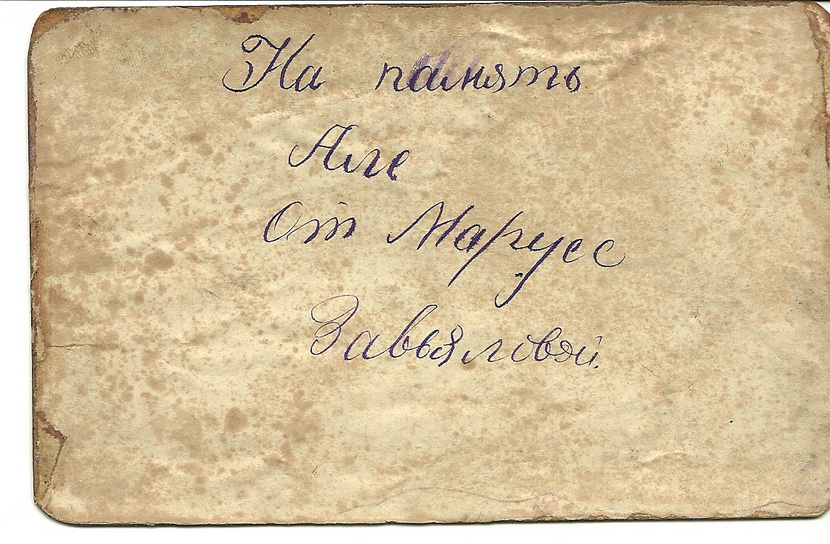 На память
Але
От Марусс
Завьяловой.